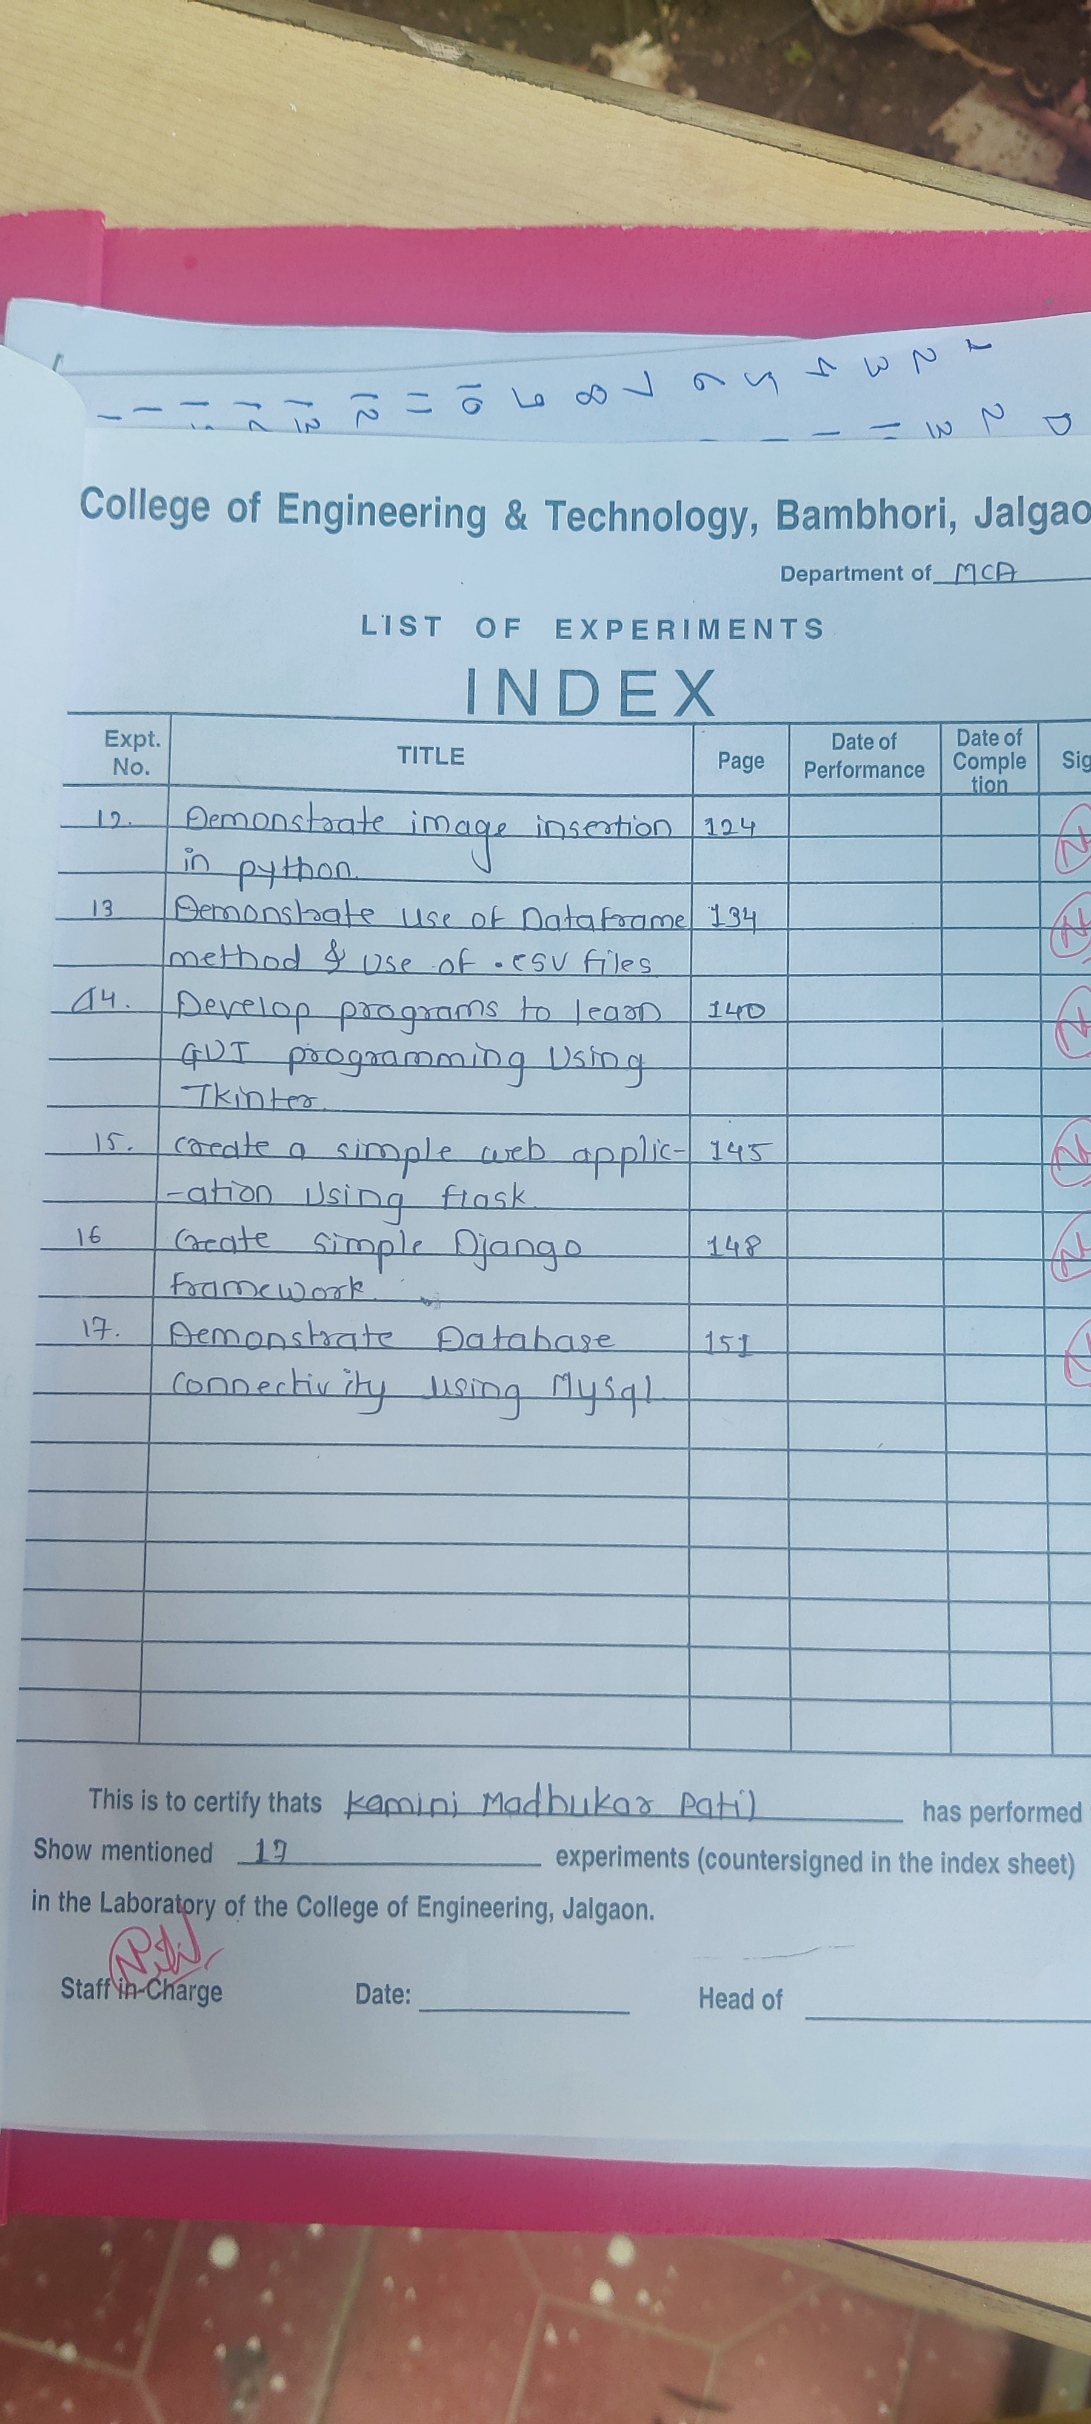 College of Engineering & Technology, Bambhori, Jalgao
Department of MCA
LIST OF EXPERIMENTS
INDEX
Expt. No. TITLE Page Date of Performance Date of Comple tion Sig
12. Demonstrate image insertion 124
in python.
13 Demonstrate Use of Dataframe 134
method & Use of .csv files
14. Develop programs to learn 140
GUI programming Using
Tkinter.
15. create a simple web applic- 145
-ation Using flask.
16 Create simple Django 148
framework.
17. Demonstrate Database 151
connectivity using Mysql.
This is to certify thats Kamini Madhukar Patil has performed
Show mentioned 17 experiments (countersigned in the index sheet)
in the Laboratory of the College of Engineering, Jalgaon.
Staff in-Charge Date: Head of